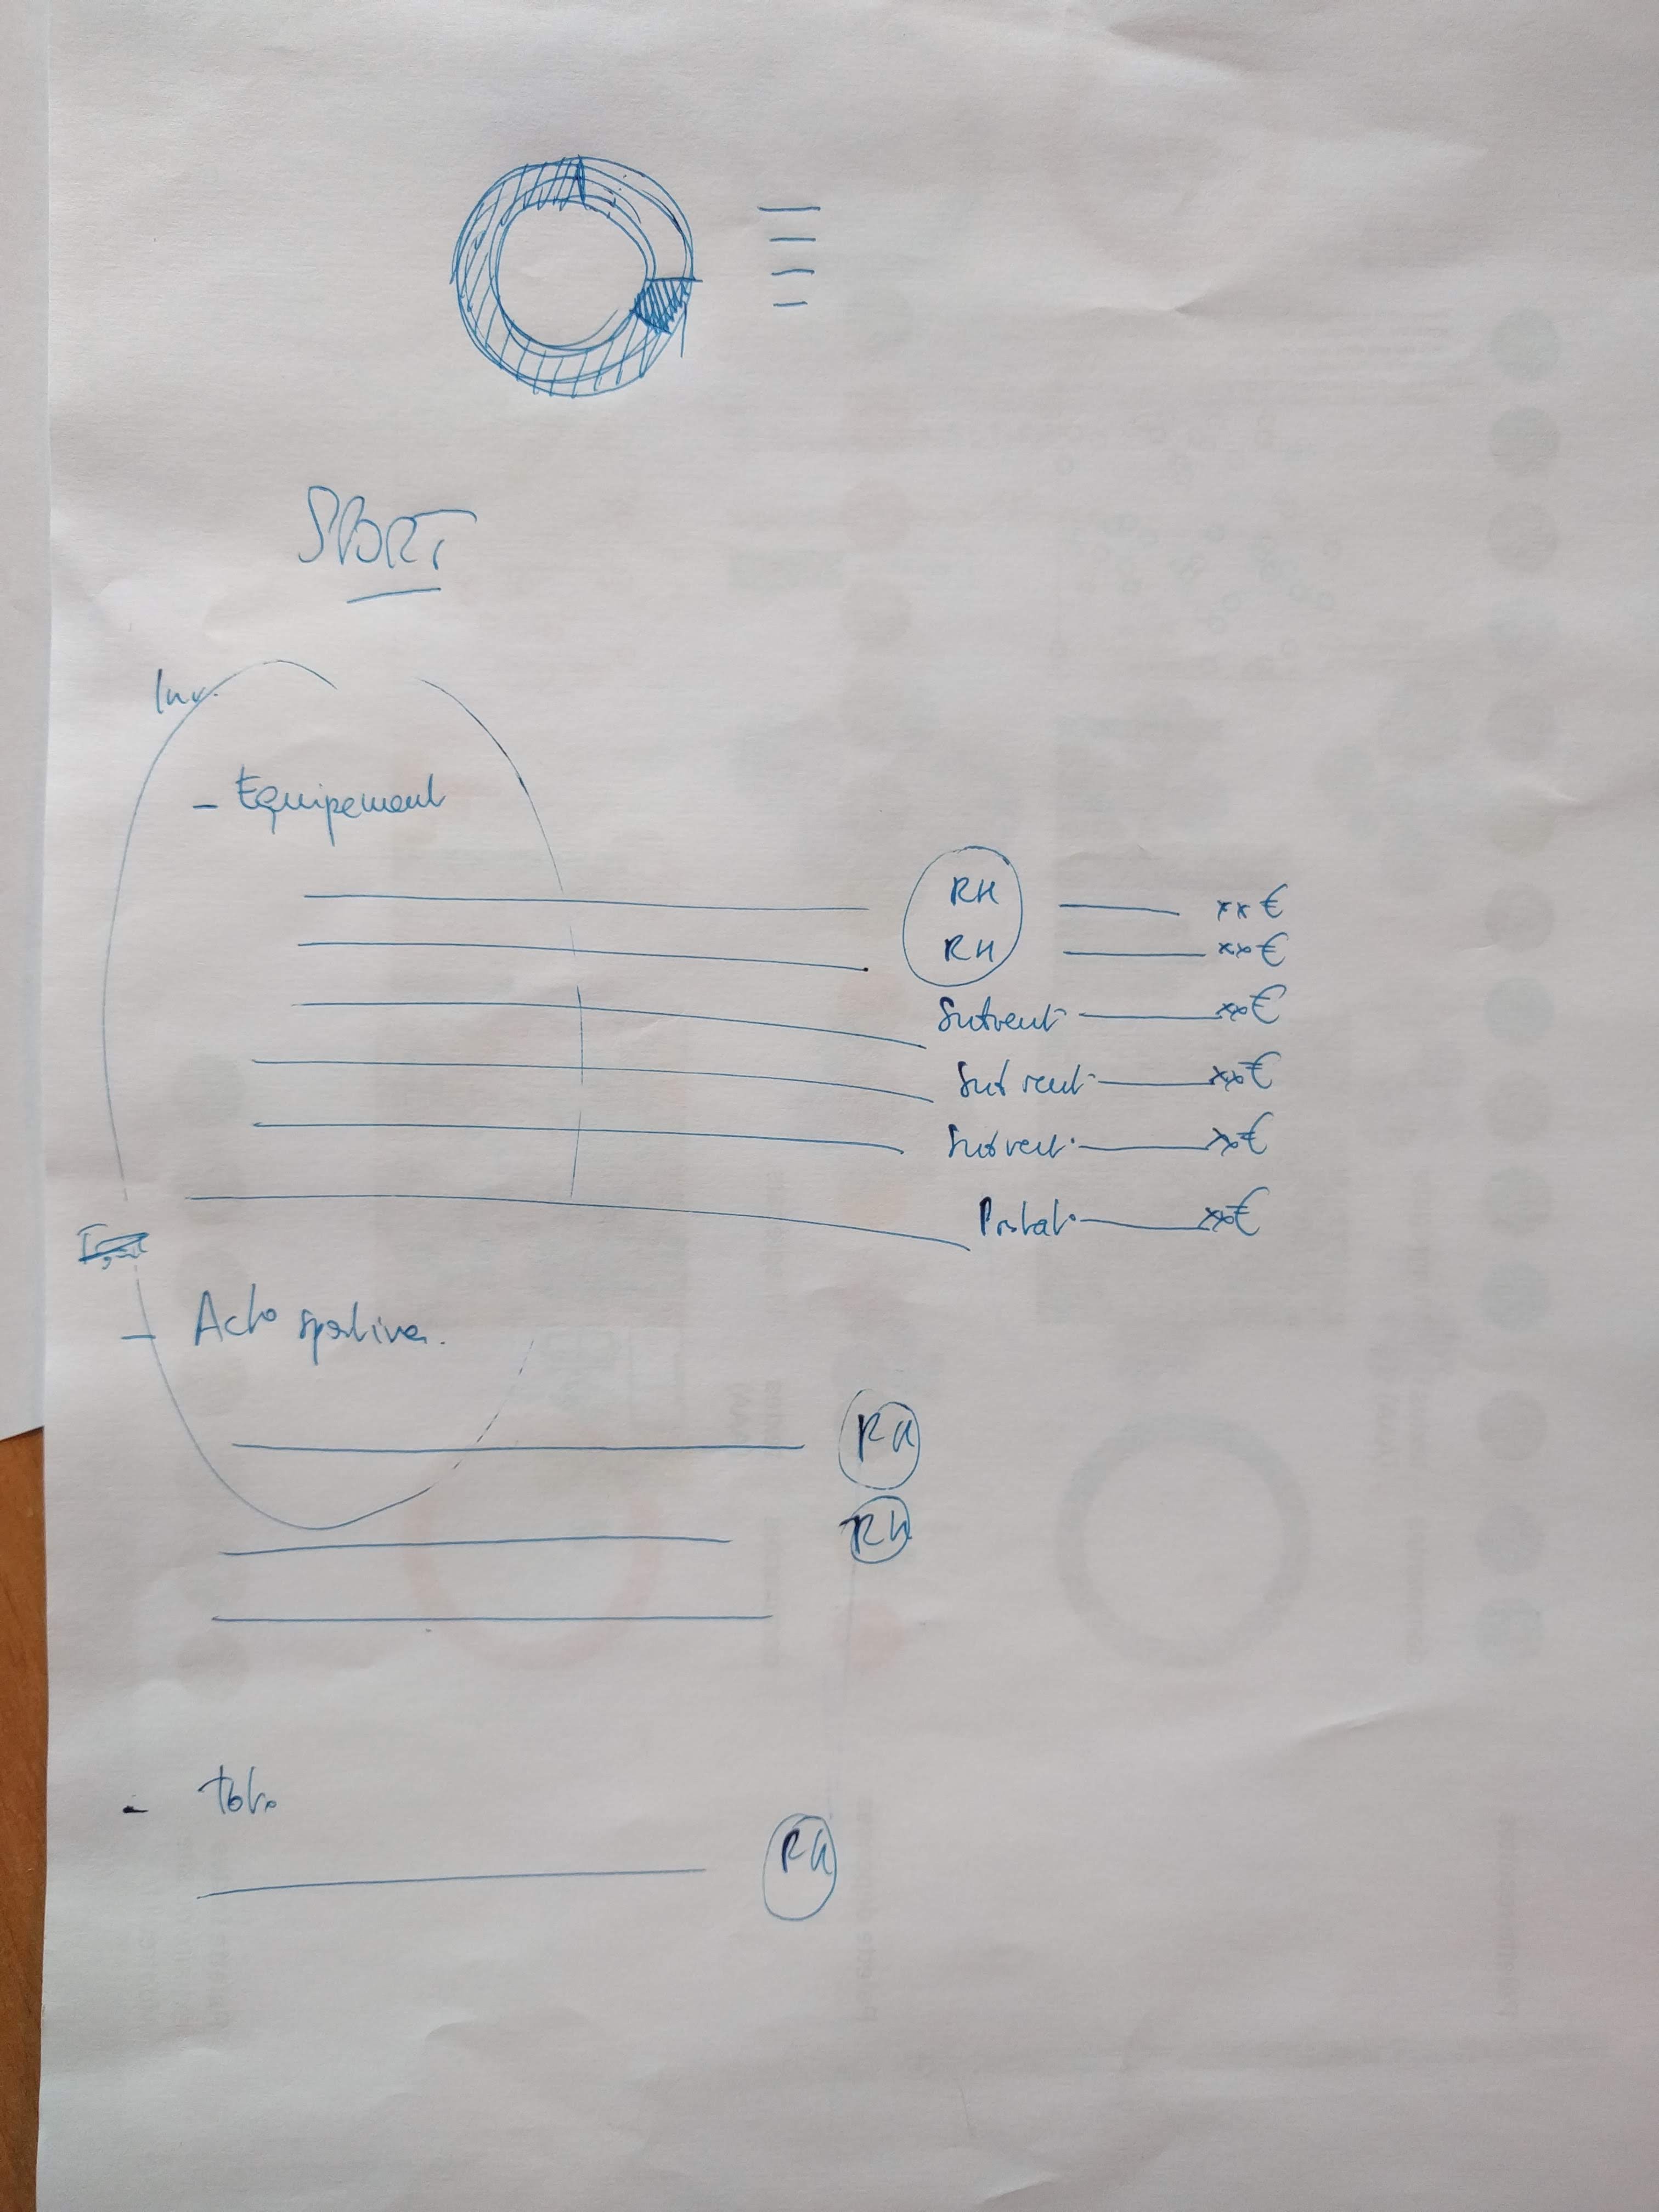 SPORT
Inv.
- Equipement
RH xx €
RH xx €
Subvent° xx €
Subvent° xx €
Subvent° xx €
Prestat° xx €
- Act° sportives.
RH
RH
-
RH